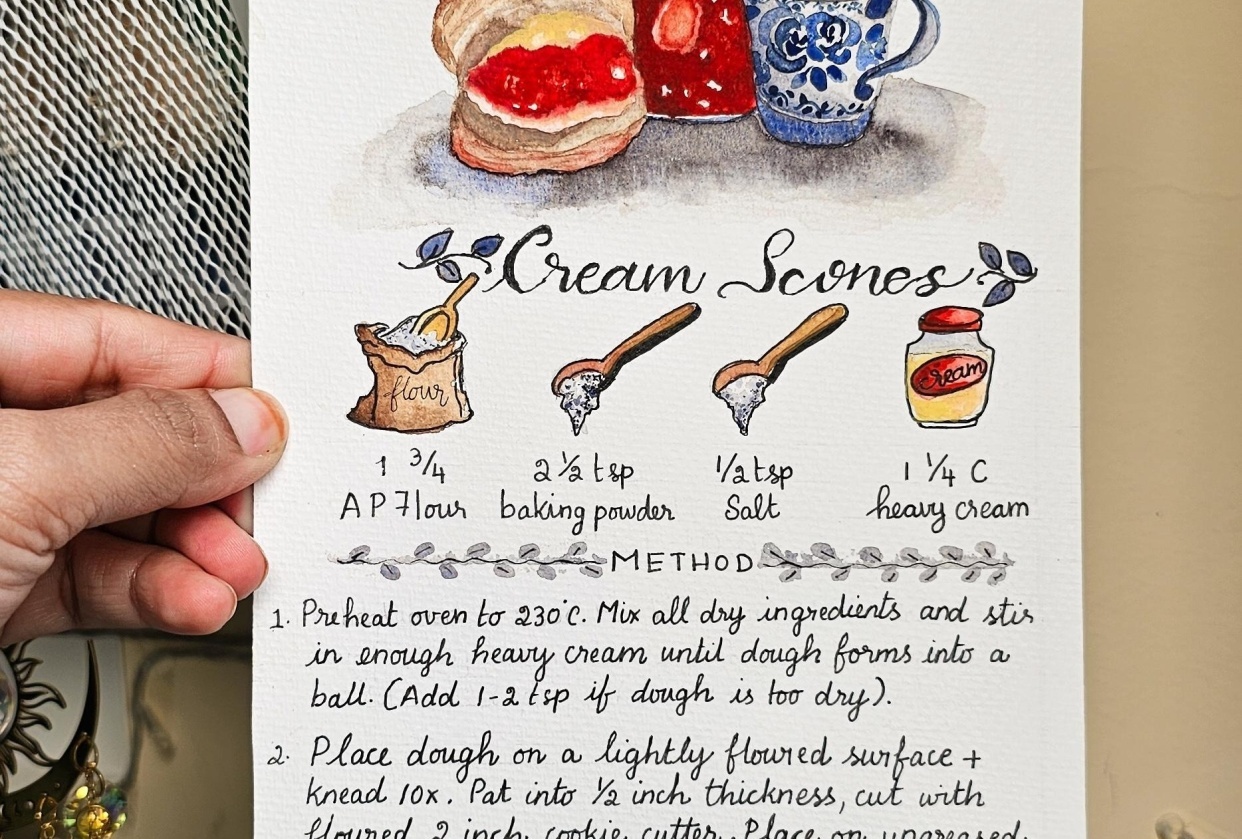 Cream Scones
flour
cream
1 3/4
AP Flour
2 1/2 tsp
baking powder
1/2 tsp
Salt
1 1/4 C
heavy cream
METHOD
1. Preheat oven to 230°C. Mix all dry ingredients and stir
in enough heavy cream until dough forms into a
ball. (Add 1-2 tsp if dough is too dry).
2. Place dough on a lightly floured surface +
knead 10x. Pat into 1/2 inch thickness, cut with
floured 2 inch cookie cutter. Place on ungreased